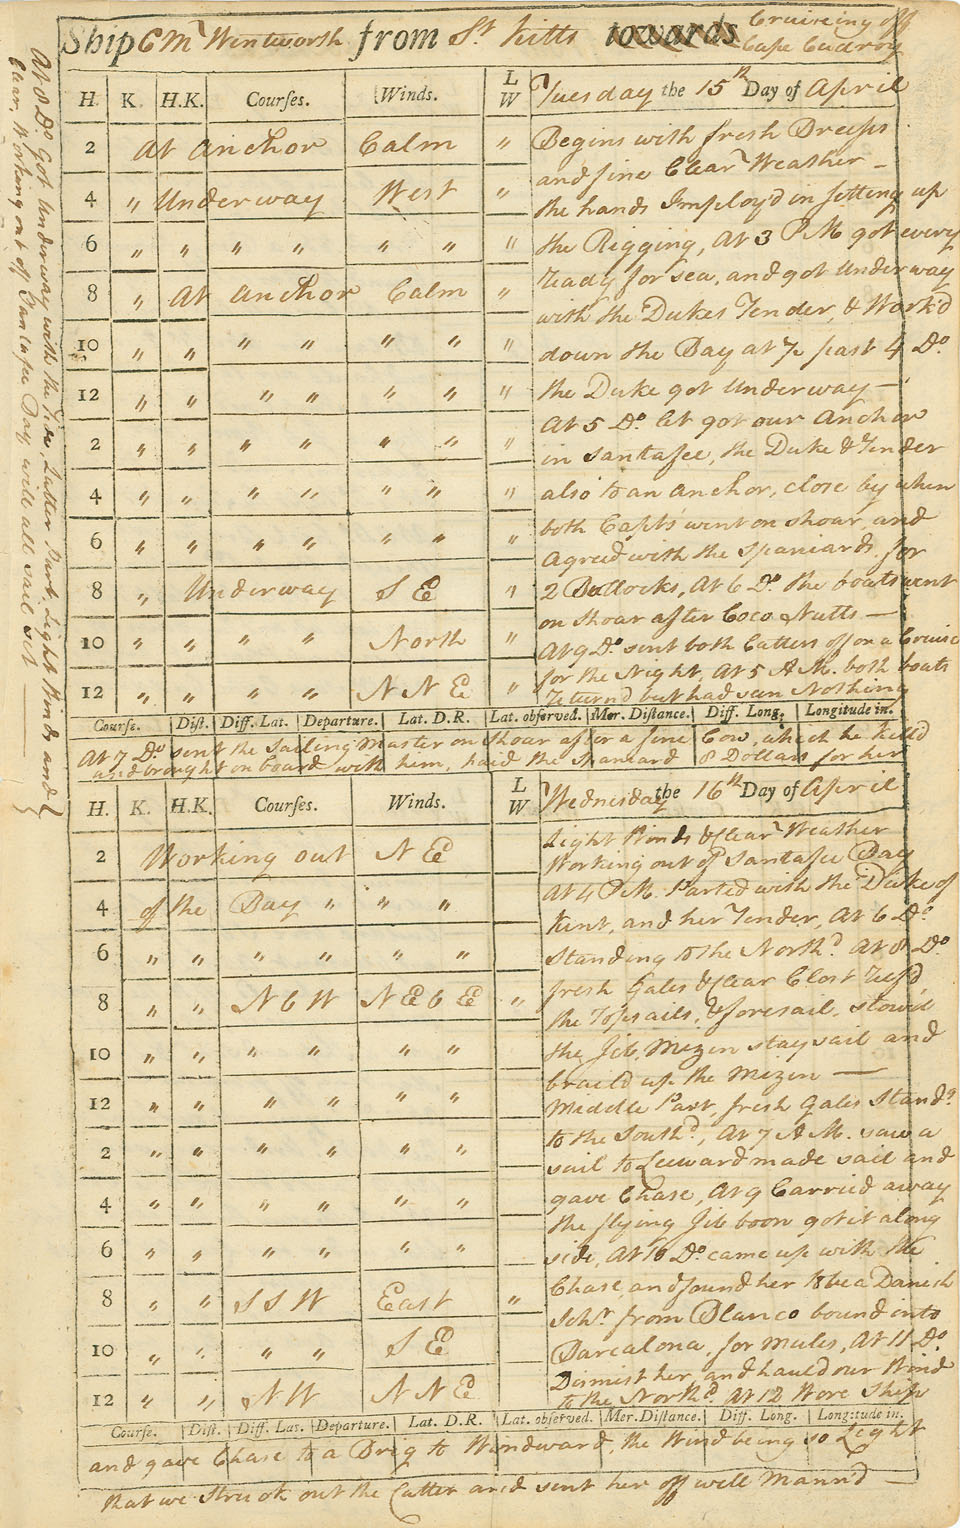 Ship C Mr Wentworth from St Kitts towards Cruiseing off
Cape Codroy
H. K. H.K. Courses. Winds. L W Tuesday the 15th Day of April
2 At Anchor Calm "
4 " Underway West "
6 " " " " " " "
8 " At Anchor Calm "
10 " " " " " " "
12 " " " " " " "
2 " " " " " " "
4 " " " " " " "
6 " " " " " " "
8 " Underway S E "
10 " " " " North "
12 " " " " N N E "
Begins with fresh Breeses
and fine Clear Weather —
the hands Imploy'd in setting up
the Rigging, At 3 PM got every
ready for sea, and got Underway
with the Dukes Tender, & Work'd
down the Bay at ½ past 4 Do
the Duke got Underway —
At 5 Do let got our Anchor
in Santafee, the Duke & Tender
also to an Anchor, close by when
both Capts went on shoar, and
Agreed with the Spaniards for
2 Bullocks, At 6 Do the boats went
on shoar after Coco Nutts —
At 9 Do sent both Cutters off on a Cruise
for the Night, At 5 AM. both boats
Return'd but had seen Nothing
Course. Dist. Diff. Lat. Departure. Lat. D.R. Lat. observed. Mer. Distance. Diff. Long. Longitude in.
At 7 Do sent the Sailing Master on Shoar after a fine Cow, which he kill'd
and brought on board with him, paid the Spaniard 8 Dollars for her
At 8 Do Got Underway with the Latter Part Light Winds and
Clear, Working out of Santafee Bay with all sail set —
H. K. H.K. Courses. Winds. L W Wednesday the 16th Day of April
2 Working out N E
4 of the Bay " " "
6 " " " " " "
8 " " N b W N E b E "
10 " " " " " "
12 " " " " " "
2 " " " " " "
4 " " " " " "
6 " " " " " "
8 " " S S W East "
10 " " " " S E
12 " " N W N N E
Light Winds & Clear Weather
Working out of Santafee Bay
At 4 PM. Parted with the Duke of
Kent, and her Tender, At 6 Do
Standing to the Northd At 8 Do
fresh Gales & Clear Clost Reef'd
the Topsails, & foresail, stow'd
the Jib, Mizen staysail and
brail'd up the Mizen —
Middle Part, fresh Gales Standg
to the Southd, At 7 AM. saw a
sail to Leeward made sail and
gave Chase, At 9 Carried away
the flying Jib boon got it along
side, At 10 Do came up with the
Chase, and found her to be a Danish
Schr from Blanco bound into
Barcalona, for Mules, At 11 Do
Dismist her, and haul'd our Wind
to the Northd At 12 Wore Ship
Course. Dist. Diff. Lat. Departure. Lat. D.R. Lat. observed. Mer. Distance. Diff. Long. Longitude in.
and gave Chase to a Brig to Windward, the Wind being so Light
that we struck out the Cutter and sent her off well Mann'd —